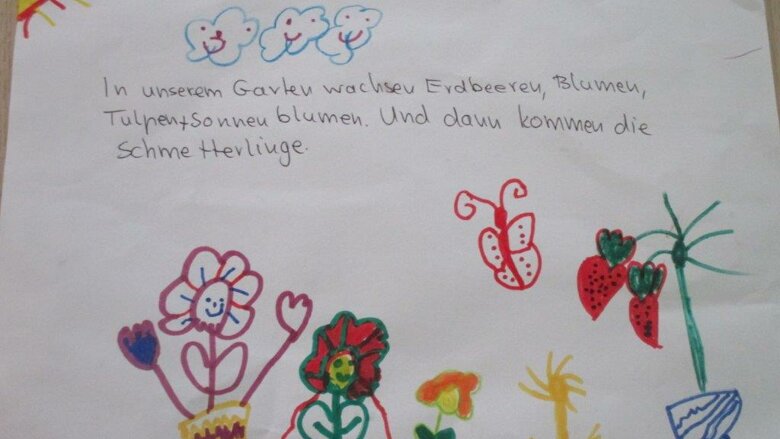 In unserem Garten wachsen Erdbeeren, Blumen,
Tulpen + Sonnenblumen. Und dann kommen die
Schmetterlinge.